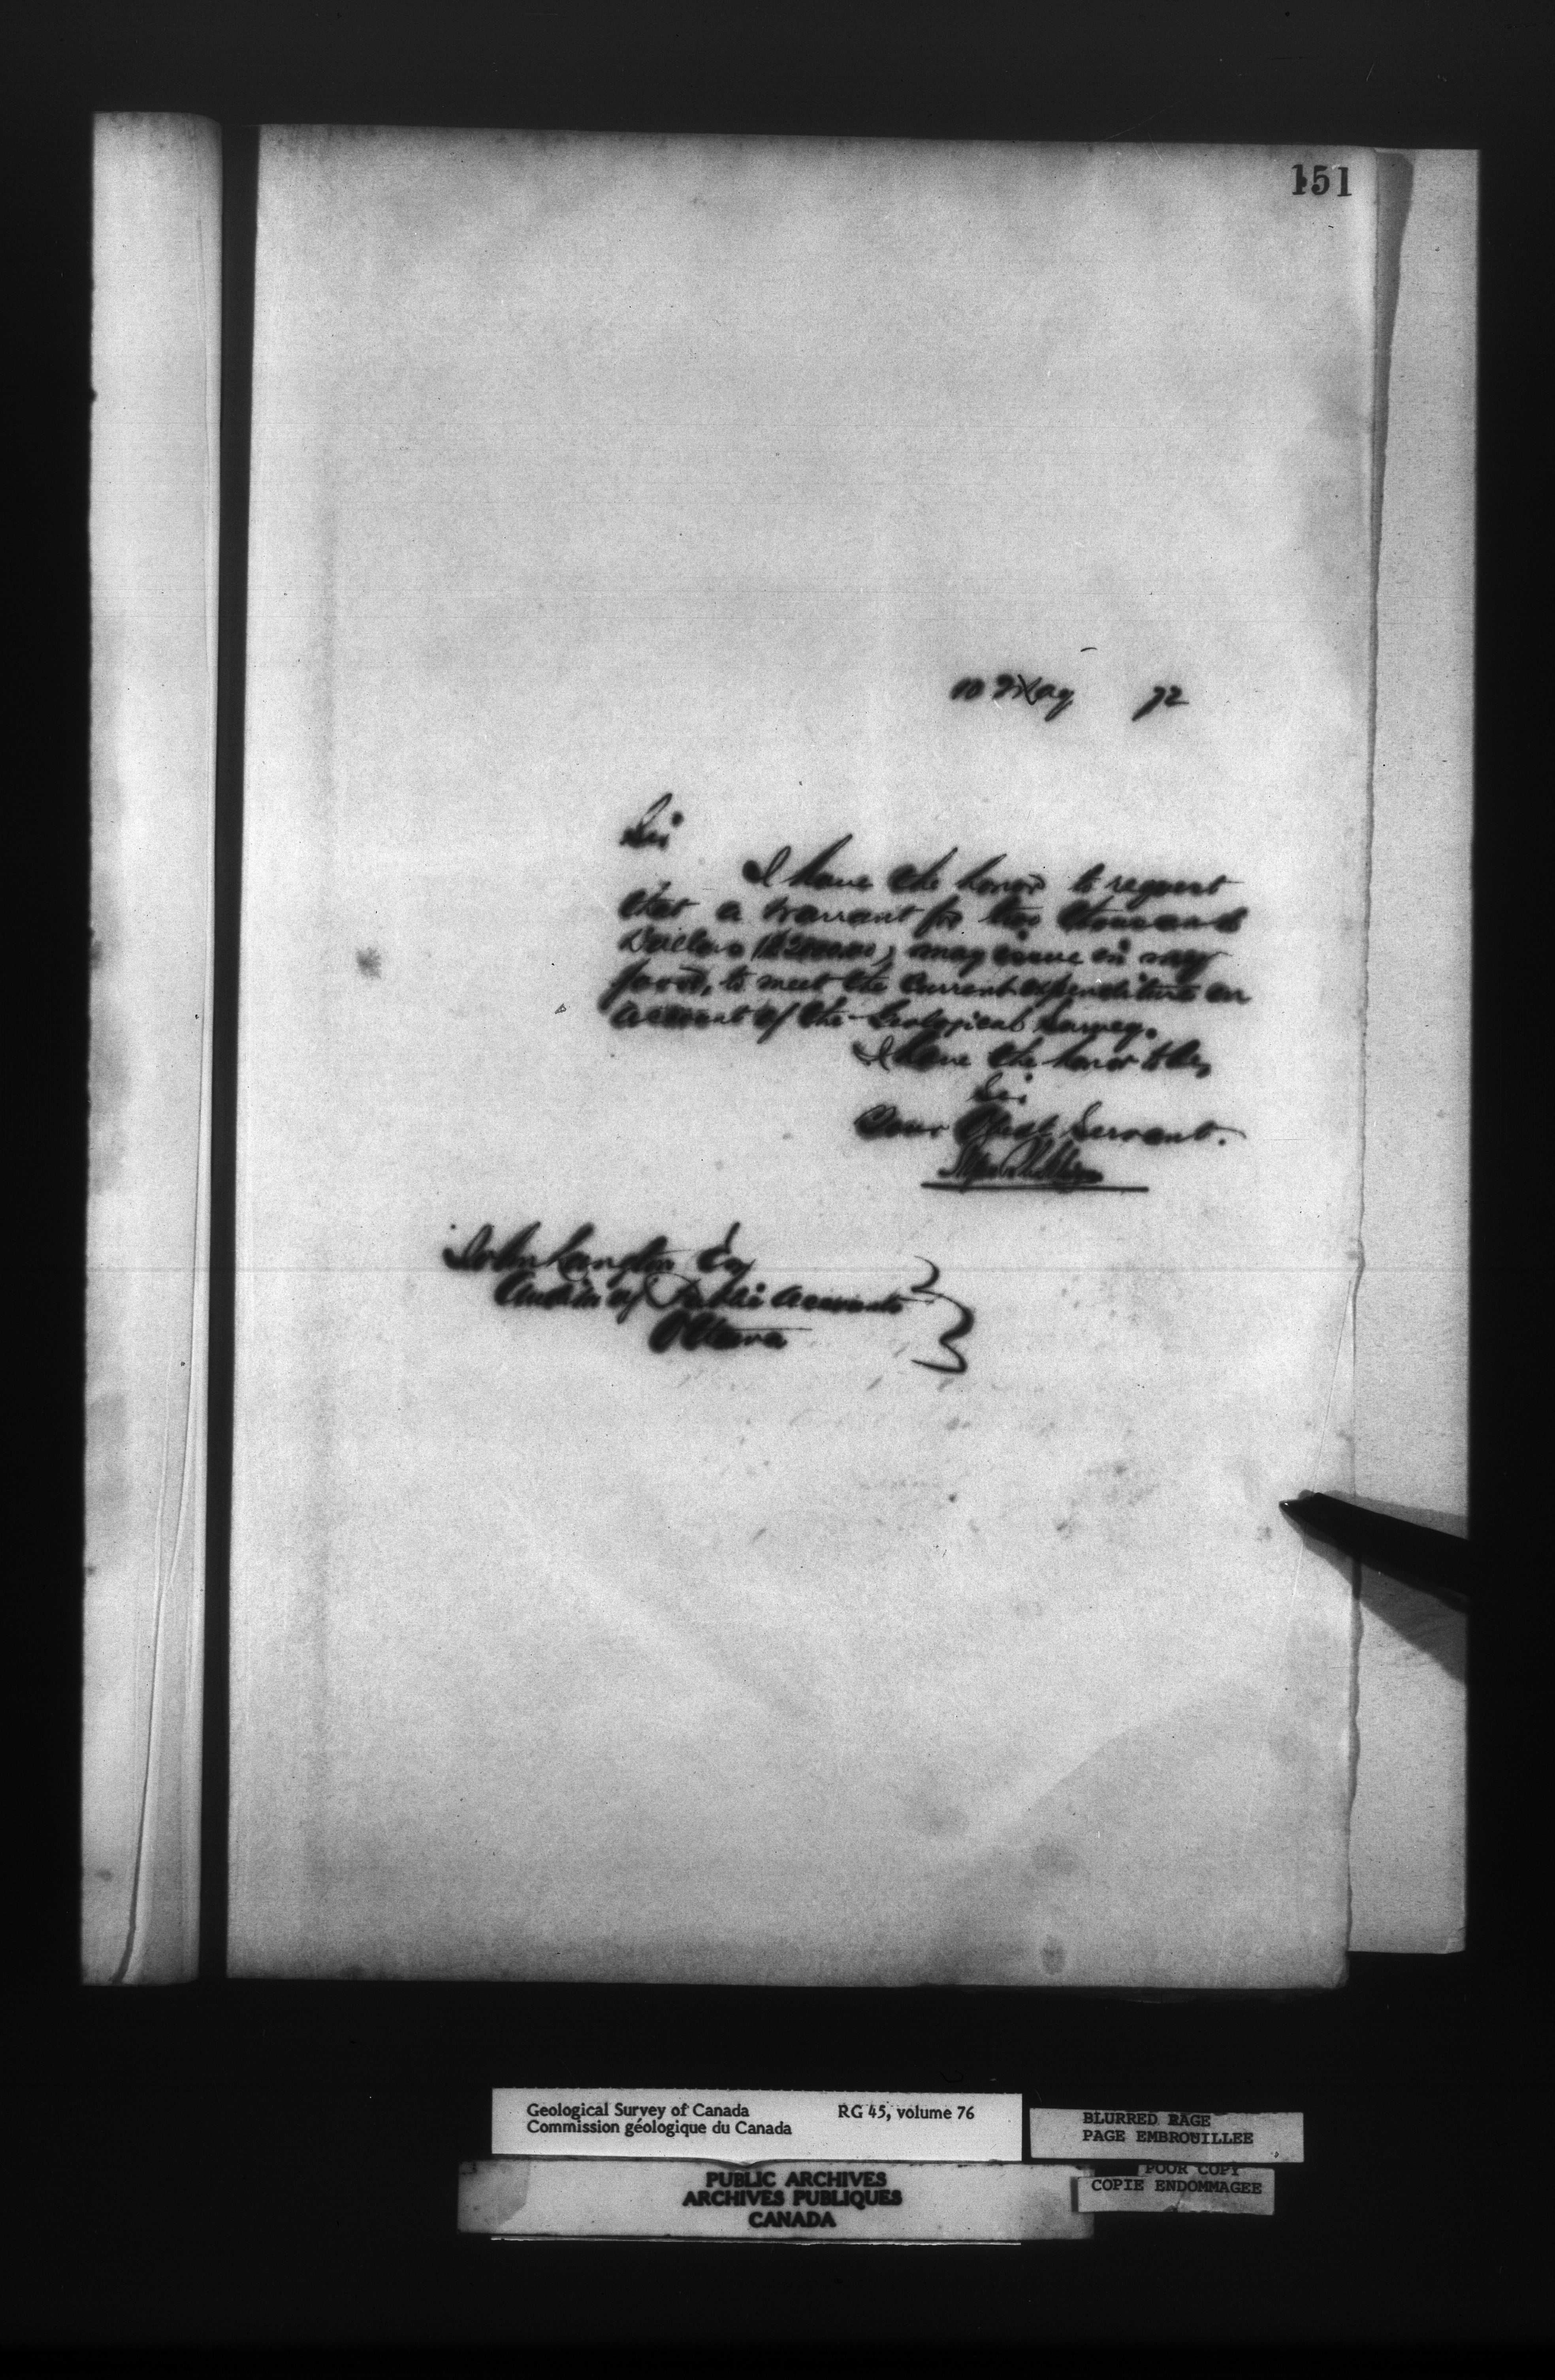 151
10 May 72
Sir
I have the honor to request
that a warrant for two thousand
Dollars ($2000.00) may issue in my
favor, to meet the current expenditure on
account of the Geological Survey.
I have the honor to be,
Sir
Your Obedt. Servant.
John Langton Esq
Auditor of Public Accounts
Ottawa
Geological Survey of Canada RG 45, volume 76
Commission géologique du Canada
BLURRED PAGE
PAGE EMBROUILLEE
POOR COPY
COPIE ENDOMMAGEE
PUBLIC ARCHIVES
ARCHIVES PUBLIQUES
CANADA